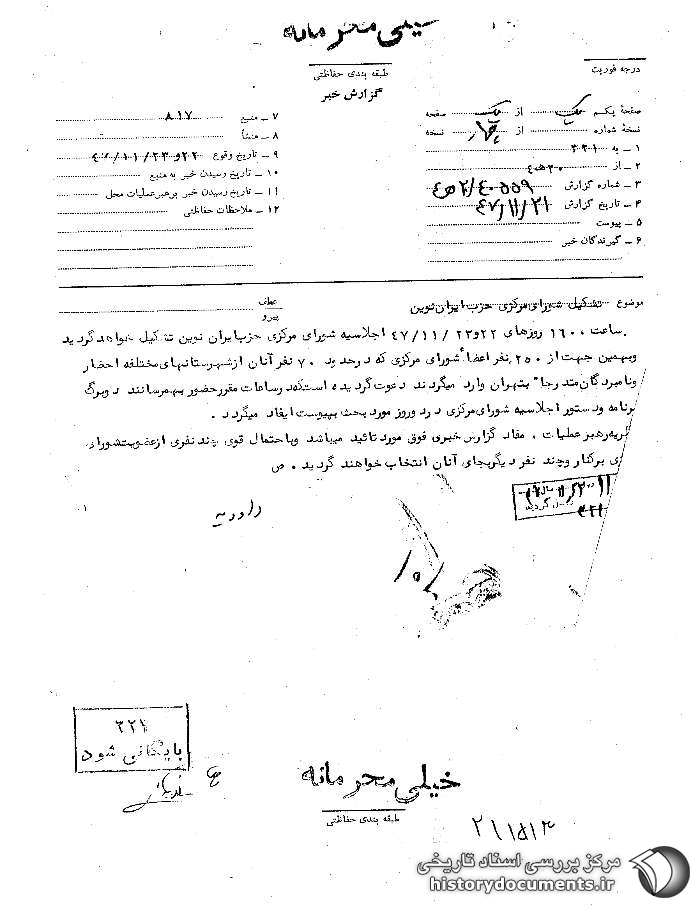 خیلی محرمانه
طبقه بندی حفاظتی
گزارش خبر
درجه فوریت
صفحهٔ یکم یک از یک صفحه
نسخهٔ شماره از چهار نسخه
۱ ـ به ۳۲۱
۲ ـ از ۲۰ ه‍ ۴
۳ ـ شماره گزارش ۴۰۵۵۹/۲ ه‍ ۴
۴ ـ تاریخ گزارش ۴۷/۱۱/۲۱
۵ ـ پیوست
۶ ـ گیرندگان خبر
۷ ـ منبع ۸۱۷
۸ ـ منشأ
۹ ـ تاریخ وقوع ۲۲و۴۷/۱۱/۲۳
۱۰ ـ تاریخ رسیدن خبر به منبع
۱۱ ـ تاریخ رسیدن خبر برهبر عملیات محل
۱۲ ـ ملاحظات حفاظتی
موضوع تشکیل شورای مرکزی حزب ایران نوین
عطف
پیرو
ساعت ۱۶۰۰ روزهای ۲۲و۲۳ /۴۷/۱۱ اجلاسیه شورای مرکزی حزب ایران نوین تشکیل خواهد گردید
وبهمین جهت از ۲۵۰ نفر اعضاٴ شورای مرکزی که در حدود ۷۰ نفر آنان از شهرستانهای مختلفه احضار
ونامبردگان متدرجا" بتهران وارد میگردند دعوت گردیده است که در ساعات مقرر حضور بهم رسانند دو برگ
برنامه و دستور اجلاسیه شورای مرکزی در دو روز مورد بحث بپیوست ایفاد میگردد .
نظریه رهبر عملیات . مفاد گزارش خبری فوق مورد تائید میباشد وباحتمال قوی چند نفری از عضویت شورای
برکنار و چند نفر دیگر بجای آنان انتخاب خواهند گردید . ص
داوریه
۳۲۱
۳۲۱
بایگانی شود
خیلی محرمانه
طبقه بندی حفاظتی
۲۱۱۵۱۳
مرکز بررسی اسناد تاریخی
historydocuments.ir